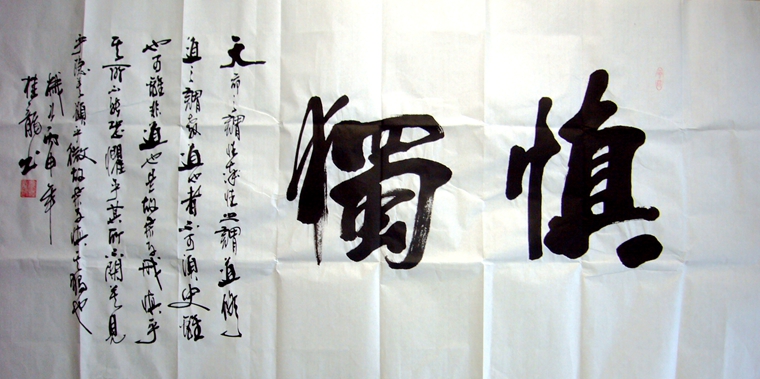 慎獨
天命之謂性率性之謂道修
道之謂教道也者不可須臾離
也可離非道也是故君子戒慎乎
其所不睹恐懼乎其所不聞莫見
乎隱莫顯乎微故君子慎其獨也
丙申年
桂龍書